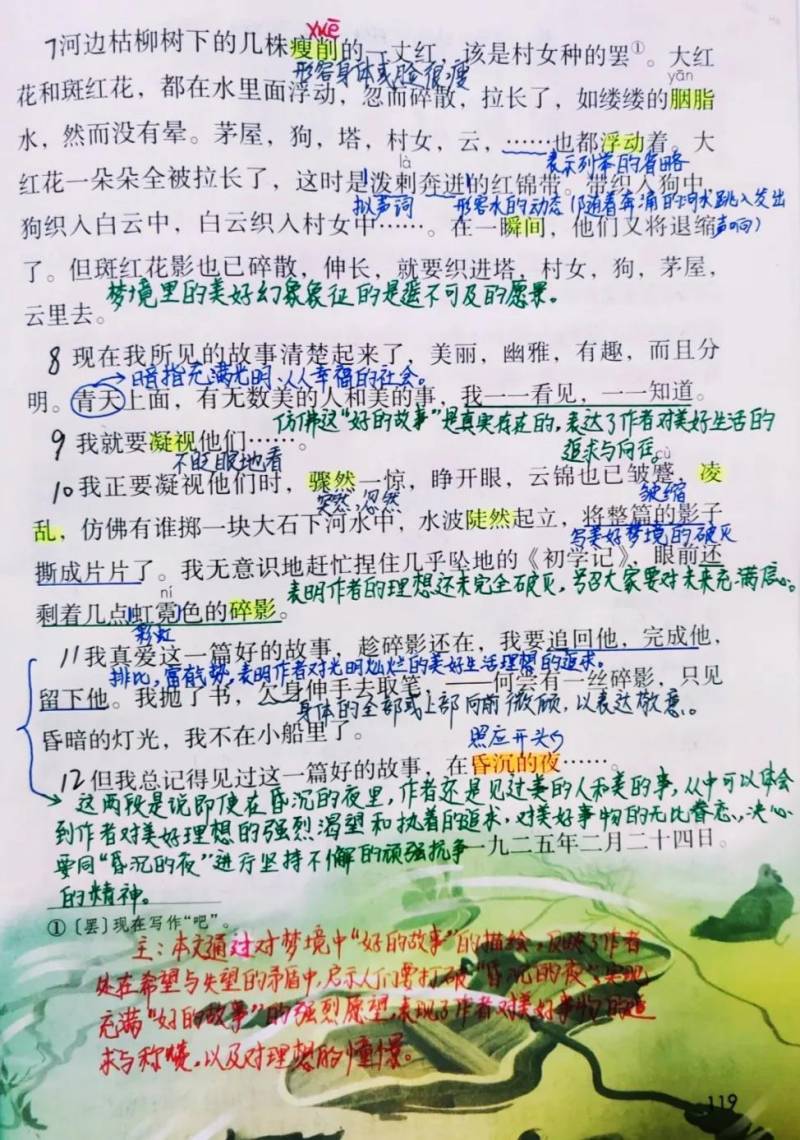 xuē
7河边枯柳树下的几株瘦削的一丈红，该是村女种的罢①。大红
形容身体或脸很瘦
yān
花和斑红花，都在水里面浮动，忽而碎散，拉长了，如缕缕的胭脂
水，然而没有晕。茅屋，狗，塔，村女，云，……也都浮动着。大
là
表示列举的省略
红花一朵朵全被拉长了，这时是泼剌奔迸的红锦带。带织入狗中，
拟声词 形容水的动态(随着奔涌的河水跳入发出声响)
狗织入白云中，白云织入村女中……。在一瞬间，他们又将退缩
了。但斑红花影也已碎散，伸长，就要织进塔，村女，狗，茅屋，
梦境里的美好幻象象征的是遥不可及的愿景。
云里去。
8现在我所见的故事清楚起来了，美丽，幽雅，有趣，而且分
暗指充满光明、人人幸福的社会。
明。青天上面，有无数美的人和美的事，我一一看见，一一知道。
仿佛这“好的故事”是真实存在的，表达了作者对美好生活的
追求与向往。
9我就要凝视他们……。
不眨眼地看
cù
10我正要凝视他们时，骤然一惊，睁开眼，云锦也已皱蹙，凌
突然，忽然 皱缩
乱，仿佛有谁掷一块大石下河水中，水波陡然起立，将整篇的影子
写美好梦境的破灭
撕成片片了。我无意识地赶忙捏住几乎坠地的《初学记》，眼前还
表明作者的理想还未完全破灭，号召大家要对未来充满信心。
ní
剩着几点虹霓色的碎影。
彩虹
11我真爱这一篇好的故事，趁碎影还在，我要追回他，完成他，
排比，富有气势，表明作者对光明灿烂的美好生活理想的追求。
留下他。我抛了书，欠身伸手去取笔，——何尝有一丝碎影，只见
身体的全部或上部向前微倾，以表达敬意。
昏暗的灯光，我不在小船里了。
照应开头
12但我总记得见过这一篇好的故事，在昏沉的夜……。
这两段是说即使在昏沉的夜里，作者还是见过美的人和美的事，从中可以体会
到作者对美好理想的强烈渴望和执着的追求，对美好事物的无比眷恋，决心
要同“昏沉的夜”进行坚持不懈的顽强抗争
一九二五年二月二十四日。
的精神。
①〔罢〕现在写作“吧”。
主：本文通过对梦境中“好的故事”的描绘，反映了作者
处在希望与失望的矛盾中，启示人们要打破“昏沉的夜”，实现
充满“好的故事”的强烈愿望，表现了作者对美好事物的追
求与称赞，以及对理想的憧憬。
119